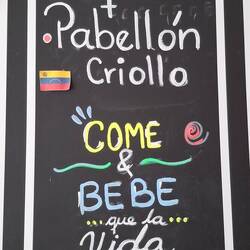 Pabellón
Criollo
COME
&
BEBE
...que la...
Vida